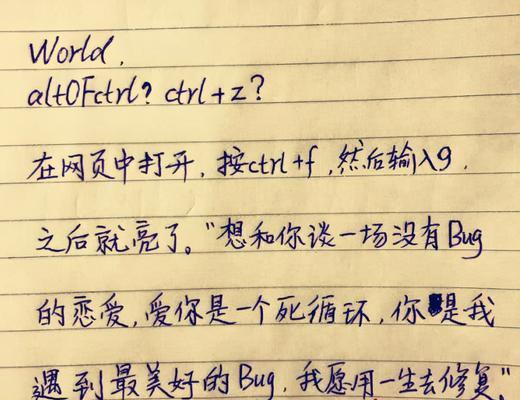 World,
alt0Fctrl? ctrl+z?
在网页中打开,按ctrl+f,然后输入9.
之后就亮了。“想和你谈一场没有Bug
的恋爱,爱你是一个死循环,你是我
遇到最美好的Bug,我愿用一生去修复”,